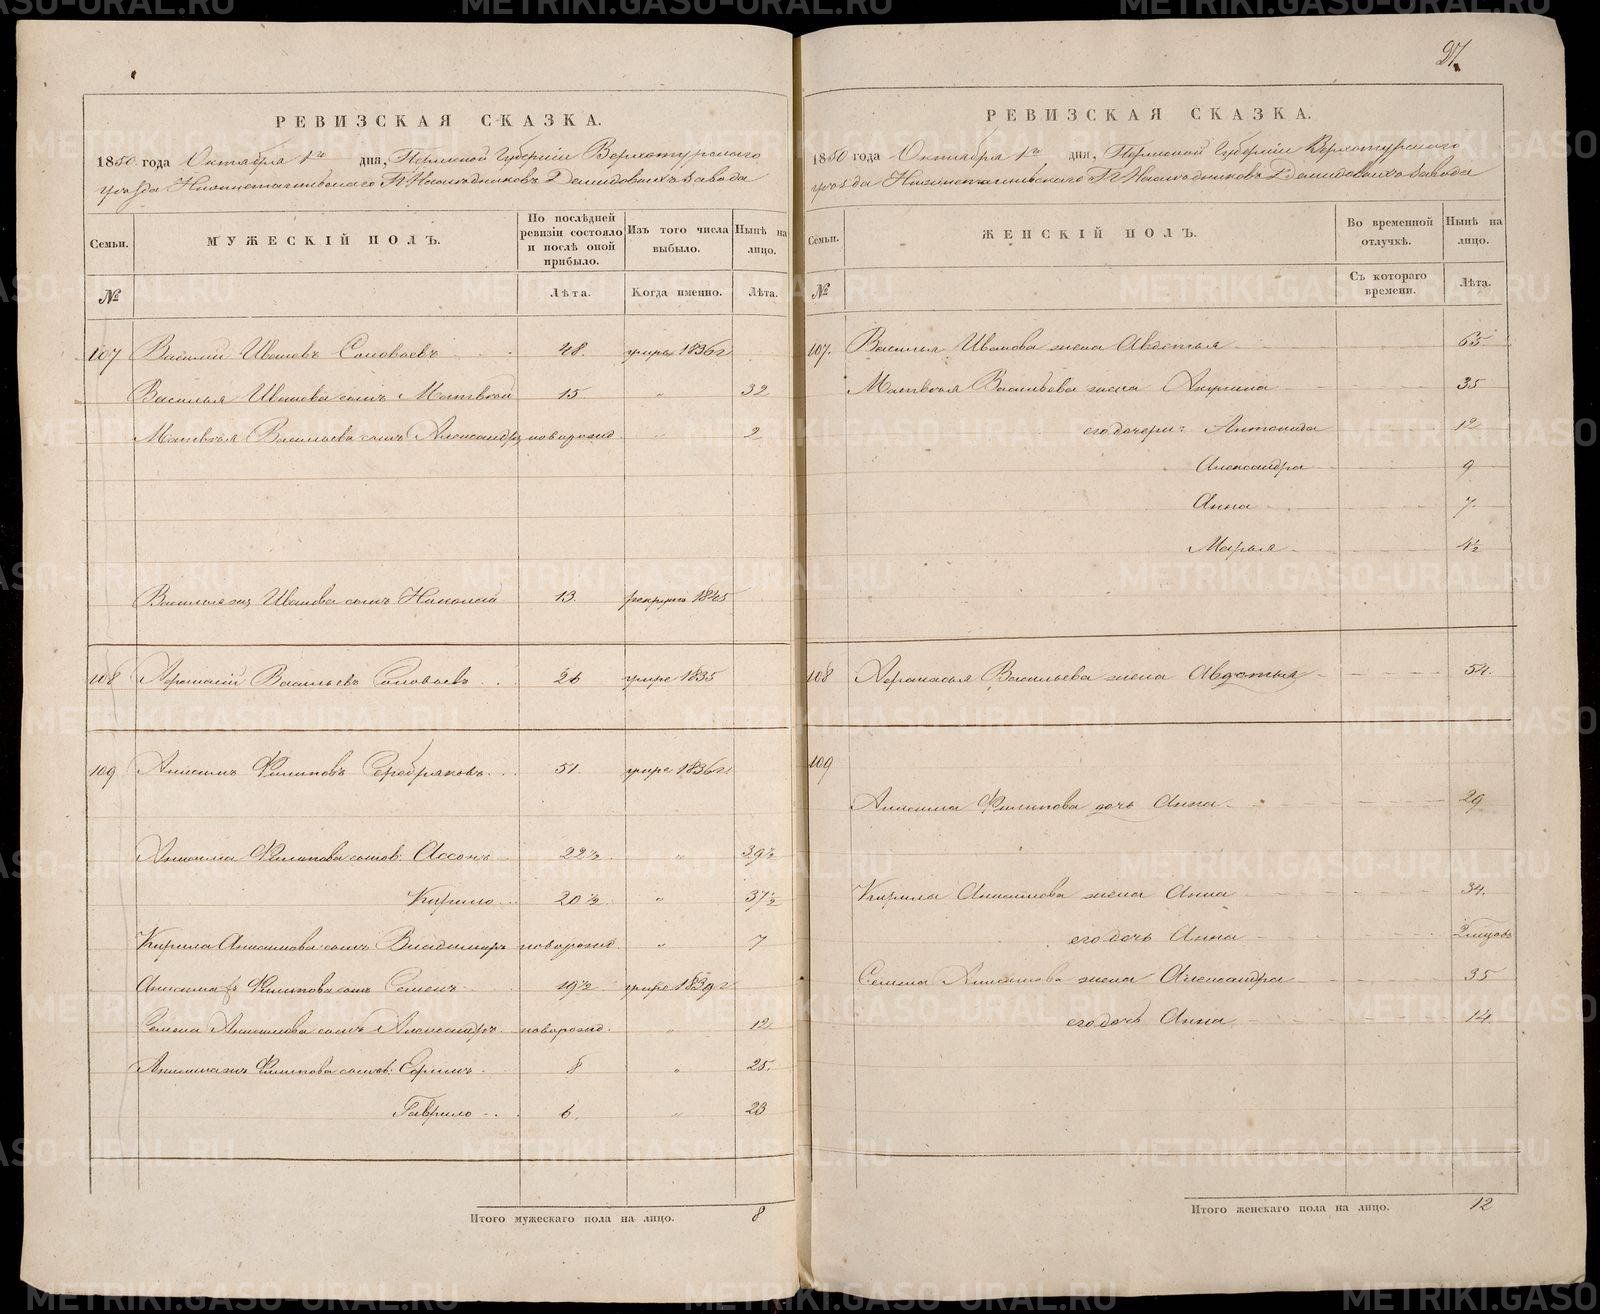 РЕВИЗСКАЯ СКАЗКА.
1850 года Октября 1го дня, Пермской Губернiи Верхотурскаго
уѣзда Нижнетагильскаго Г. Наслѣдниковъ Демидовыхъ завода
Семьи.
МУЖЕСКІЙ ПОЛЪ.
По послѣдней ревизіи состояло и послѣ оной прибыло.
Изъ того числа выбыло.
Нынѣ на лицо.
№
Лѣта.
Когда именно.
Лѣта.
107 Василий Ивановъ Соловьевъ 48. умре 1836 г
Василья Иванова сынъ Матвѣй 15 " 32
Матвѣя Васильева сынъ Александръ новорожд. " 2
Василья Иванова сынъ Николай 13. рекрутъ 1845
108 Афанасій Васильевъ Соловьевъ 26 умре 1835
109 Анисимъ Филиповъ Серебряковъ 51. умре 1836 г
Анисима Филипова сынов: Ассонъ 22½ " 39½
Кирило 20½ " 37½
Кирила Анисимова сынъ Владимиръ новорожд. " 7
Анисима Филипова сынъ Семенъ 19½ умре 1839 г
Семена Анисимова сынъ Александръ новорожд. " 12
Анисима Филипова сынов: Ефимъ 8 " 25.
Гаврило 6. " 23
Итого мужескаго пола на лицо. 8
27.
РЕВИЗСКАЯ СКАЗКА.
1850 года Октября 1го дня, Пермской Губернiи Верхотурскаго
уѣзда Нижнетагильскаго Г. Наслѣдниковъ Демидовыхъ завода
Семьи.
ЖЕНСКІЙ ПОЛЪ.
Во временной отлучкѣ.
Нынѣ на лицо.
№
Съ котораго времени.
Лѣта.
107. Василья Иванова жена Авдотья 65
Матвѣя Васильева жена Акулина 35
его дочери: Антонида 12
Александра 9
Анна 7.
Марья 4½
108 Афанасья Васильева жена Авдотья 54.
109
Анисима Филипова дочь Анна 29
Кирила Анисимова жена Анна 34.
его дочь Анна 2 мѣсяц.
Семена Анисимова жена Александра 35
его дочь Анна 14.
Итого женскаго пола на лицо. 12
METRIKI.GASO-URAL.RU